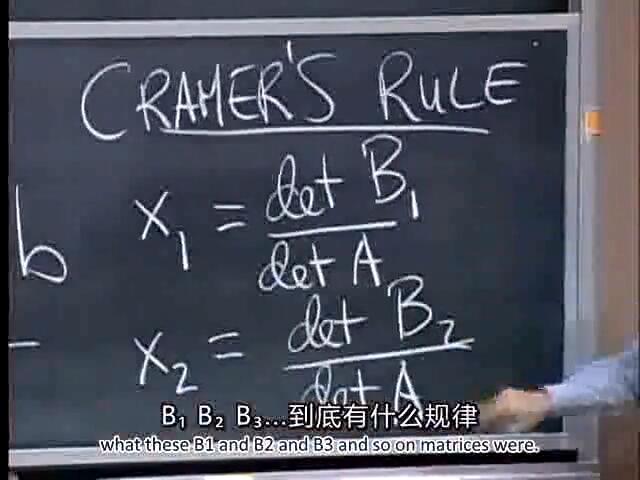 CRAMER'S RULE
b
x₁ = det B₁ / det A
x₂ = det B₂ / det A
B₁ B₂ B₃...到底有什么规律
what these B1 and B2 and B3 and so on matrices were.